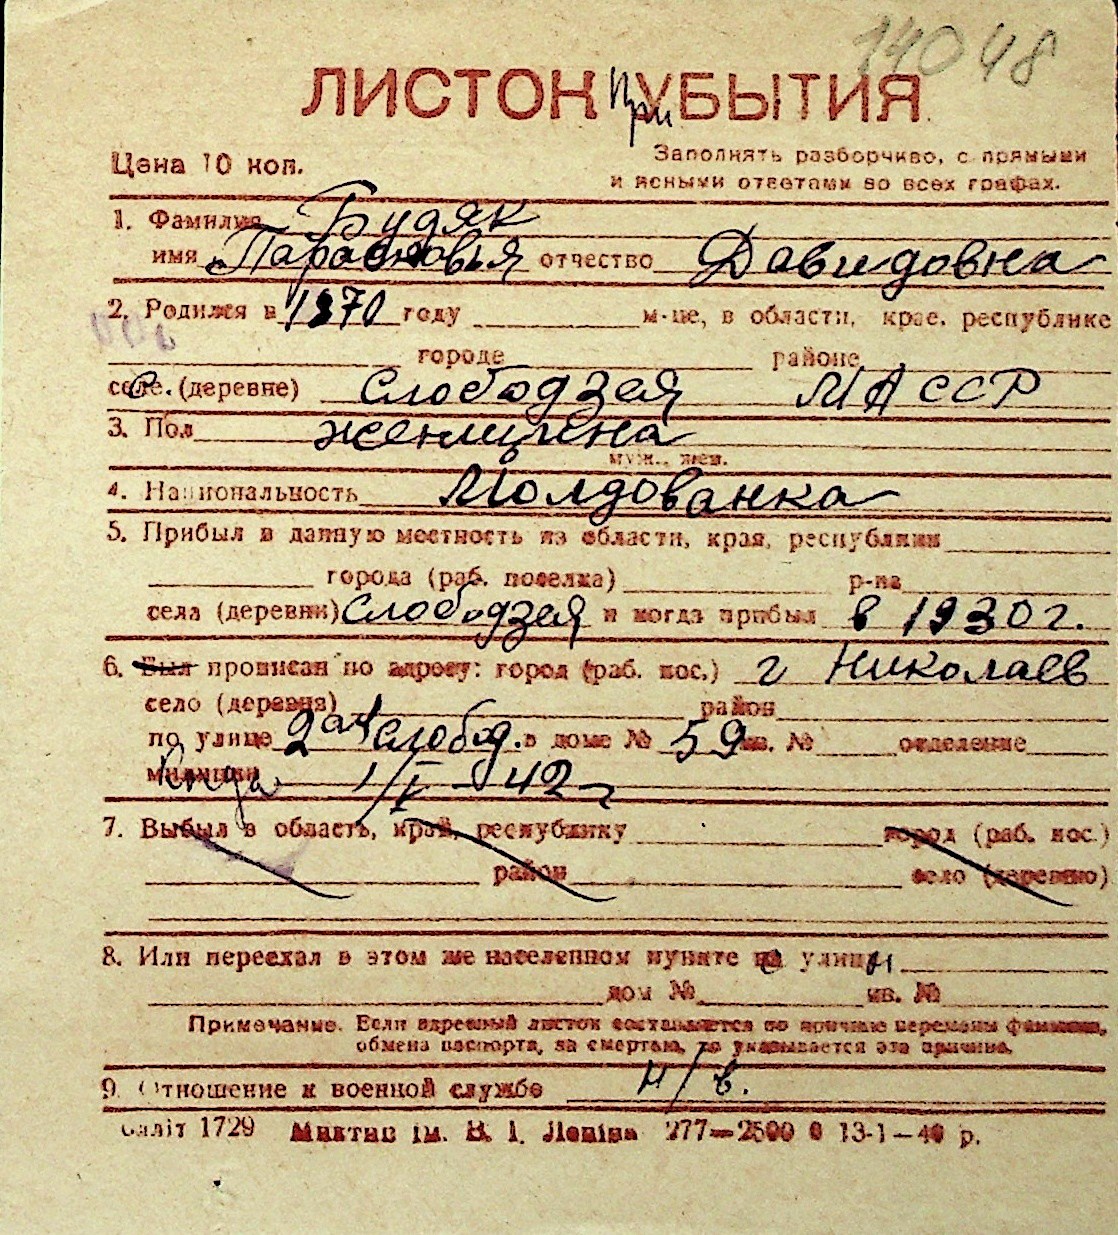 14048
ЛИСТОК При УБЫТИЯ
Цена 10 коп.
Заполнять разборчиво, с прямыми
и ясными ответами во всех графах.
1. Фамилия Будяк
имя Парасковья отчество Давидовна
2. Родился в 1870 году м-це, в области, крае, республике
городе районе
селе (деревне) Слободзея МАССР
3. Пол женщина
муж., жен.
4. Национальность Молдованка
5. Прибыл в данную местность из области, края, республики
города (раб. поселка) р-на
села (деревни) Слободзея и когда прибыл в 1930 г.
6. Был прописан по адресу: город (раб. пос.) г Николаев
село (деревня) район
по улице 2ая слобод. в доме № 59 кв. № отделение
милиции 1/V - 42 г
7. Выбыл в область, край, республику город (раб. пос.)
район село (деревню)
8. Или переехал в этом же населенном пункте на улицу
дом № кв. №
Примечание. Если адресный листок составляется по причине перемены фамилии,
обмена паспорта, за смертью, то указывается эта причина.
9. Отношение к военной службе н/в.
1729 Миктип ім. В. І. Леніна 277—2500 13-1—40 р.